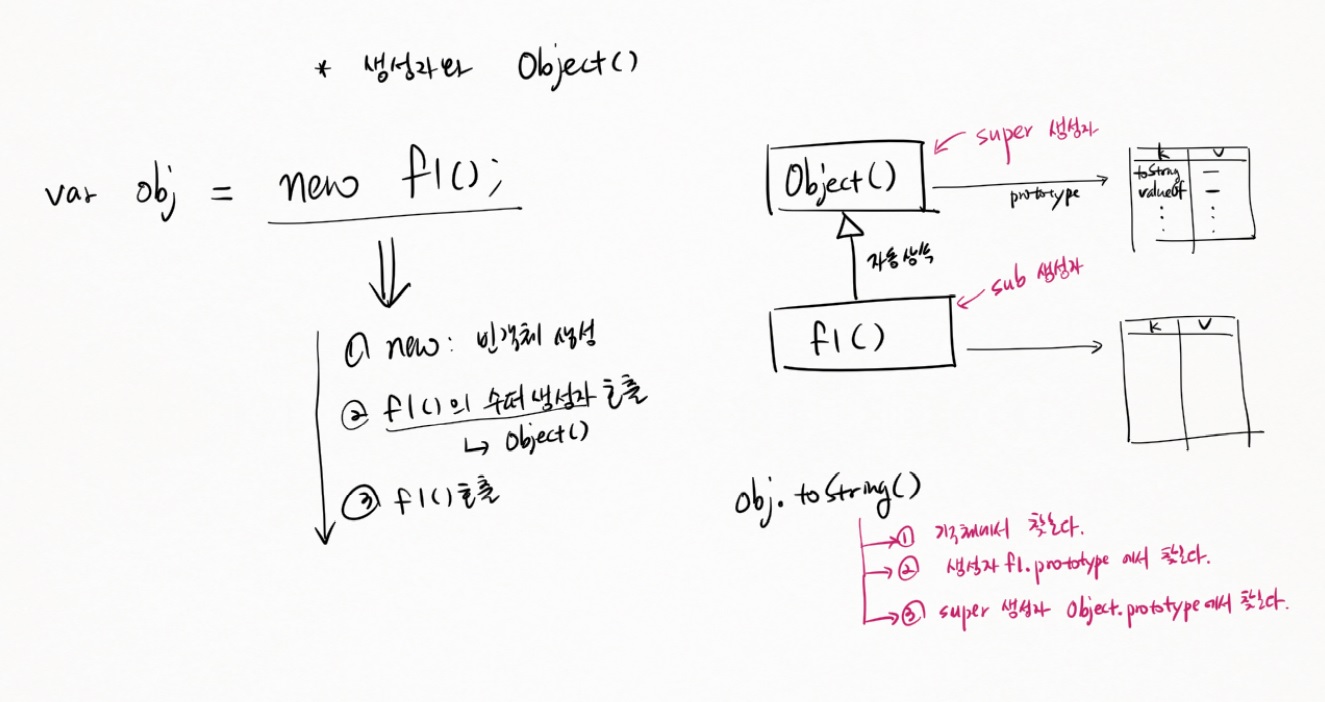 * 생성자와 Object()
var obj = new f1();
① new: 빈객체 생성
② f1()의 수퍼생성자 호출
↳ Object()
③ f1() 호출
Object()
super 생성자
prototype
K V
toString —
valueOf —
⋮ ⋮
자동상속
sub 생성자
f1()
K V
obj.toString()
① 객체에서 찾는다.
② 생성자 f1.prototype에서 찾는다.
③ super 생성자 Object.prototype에서 찾는다.